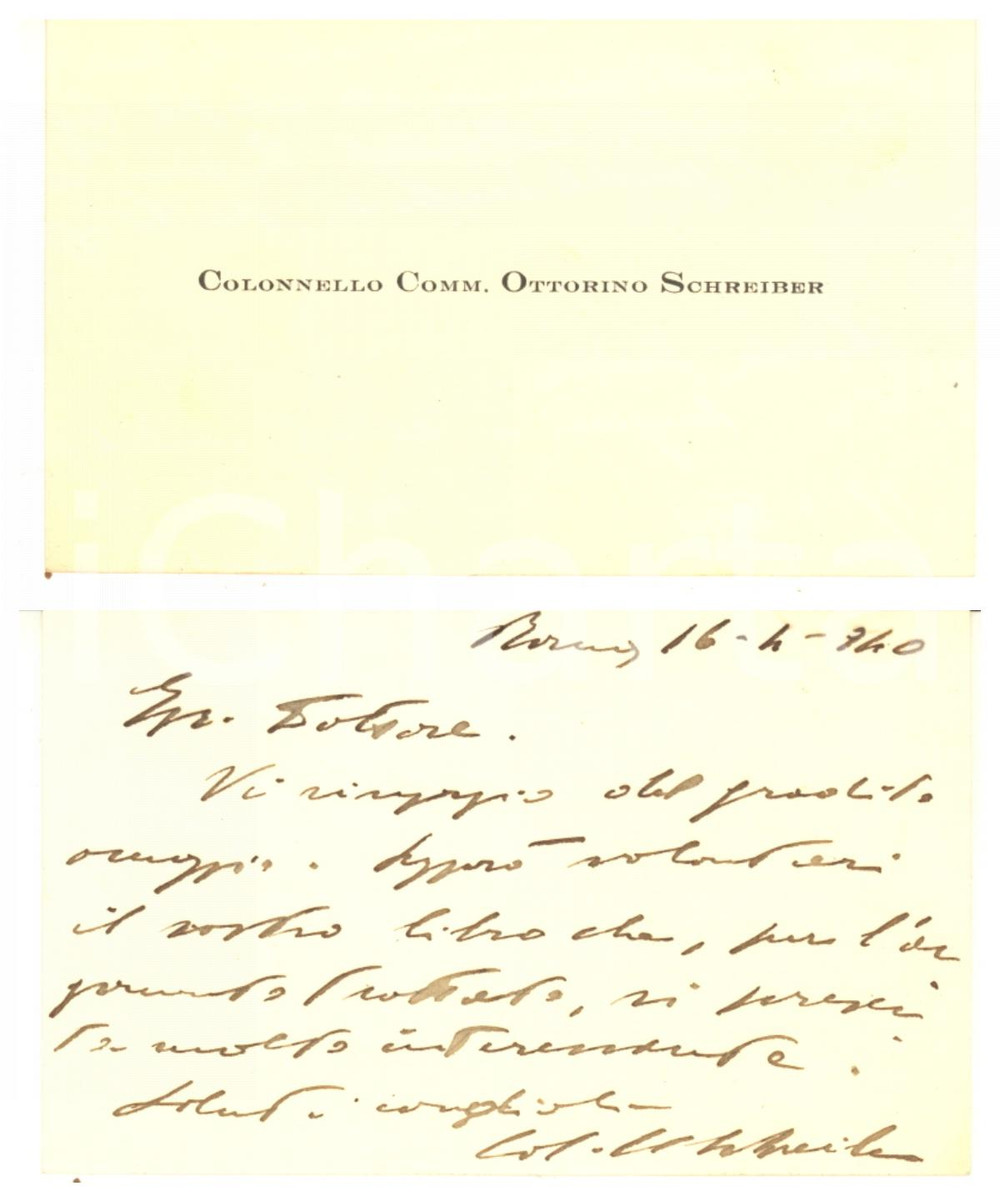 COLONNELLO COMM. OTTORINO SCHREIBER
iCharta
Roma, 16-4-940
Egr. Dottore.
Vi ringrazio del gradito
omaggio. Leggerò volontieri
il vostro libro che, per l'ar
gomento trattato, si presen
ta molto interessante.
Saluti cordiali
Col. O Schreiber